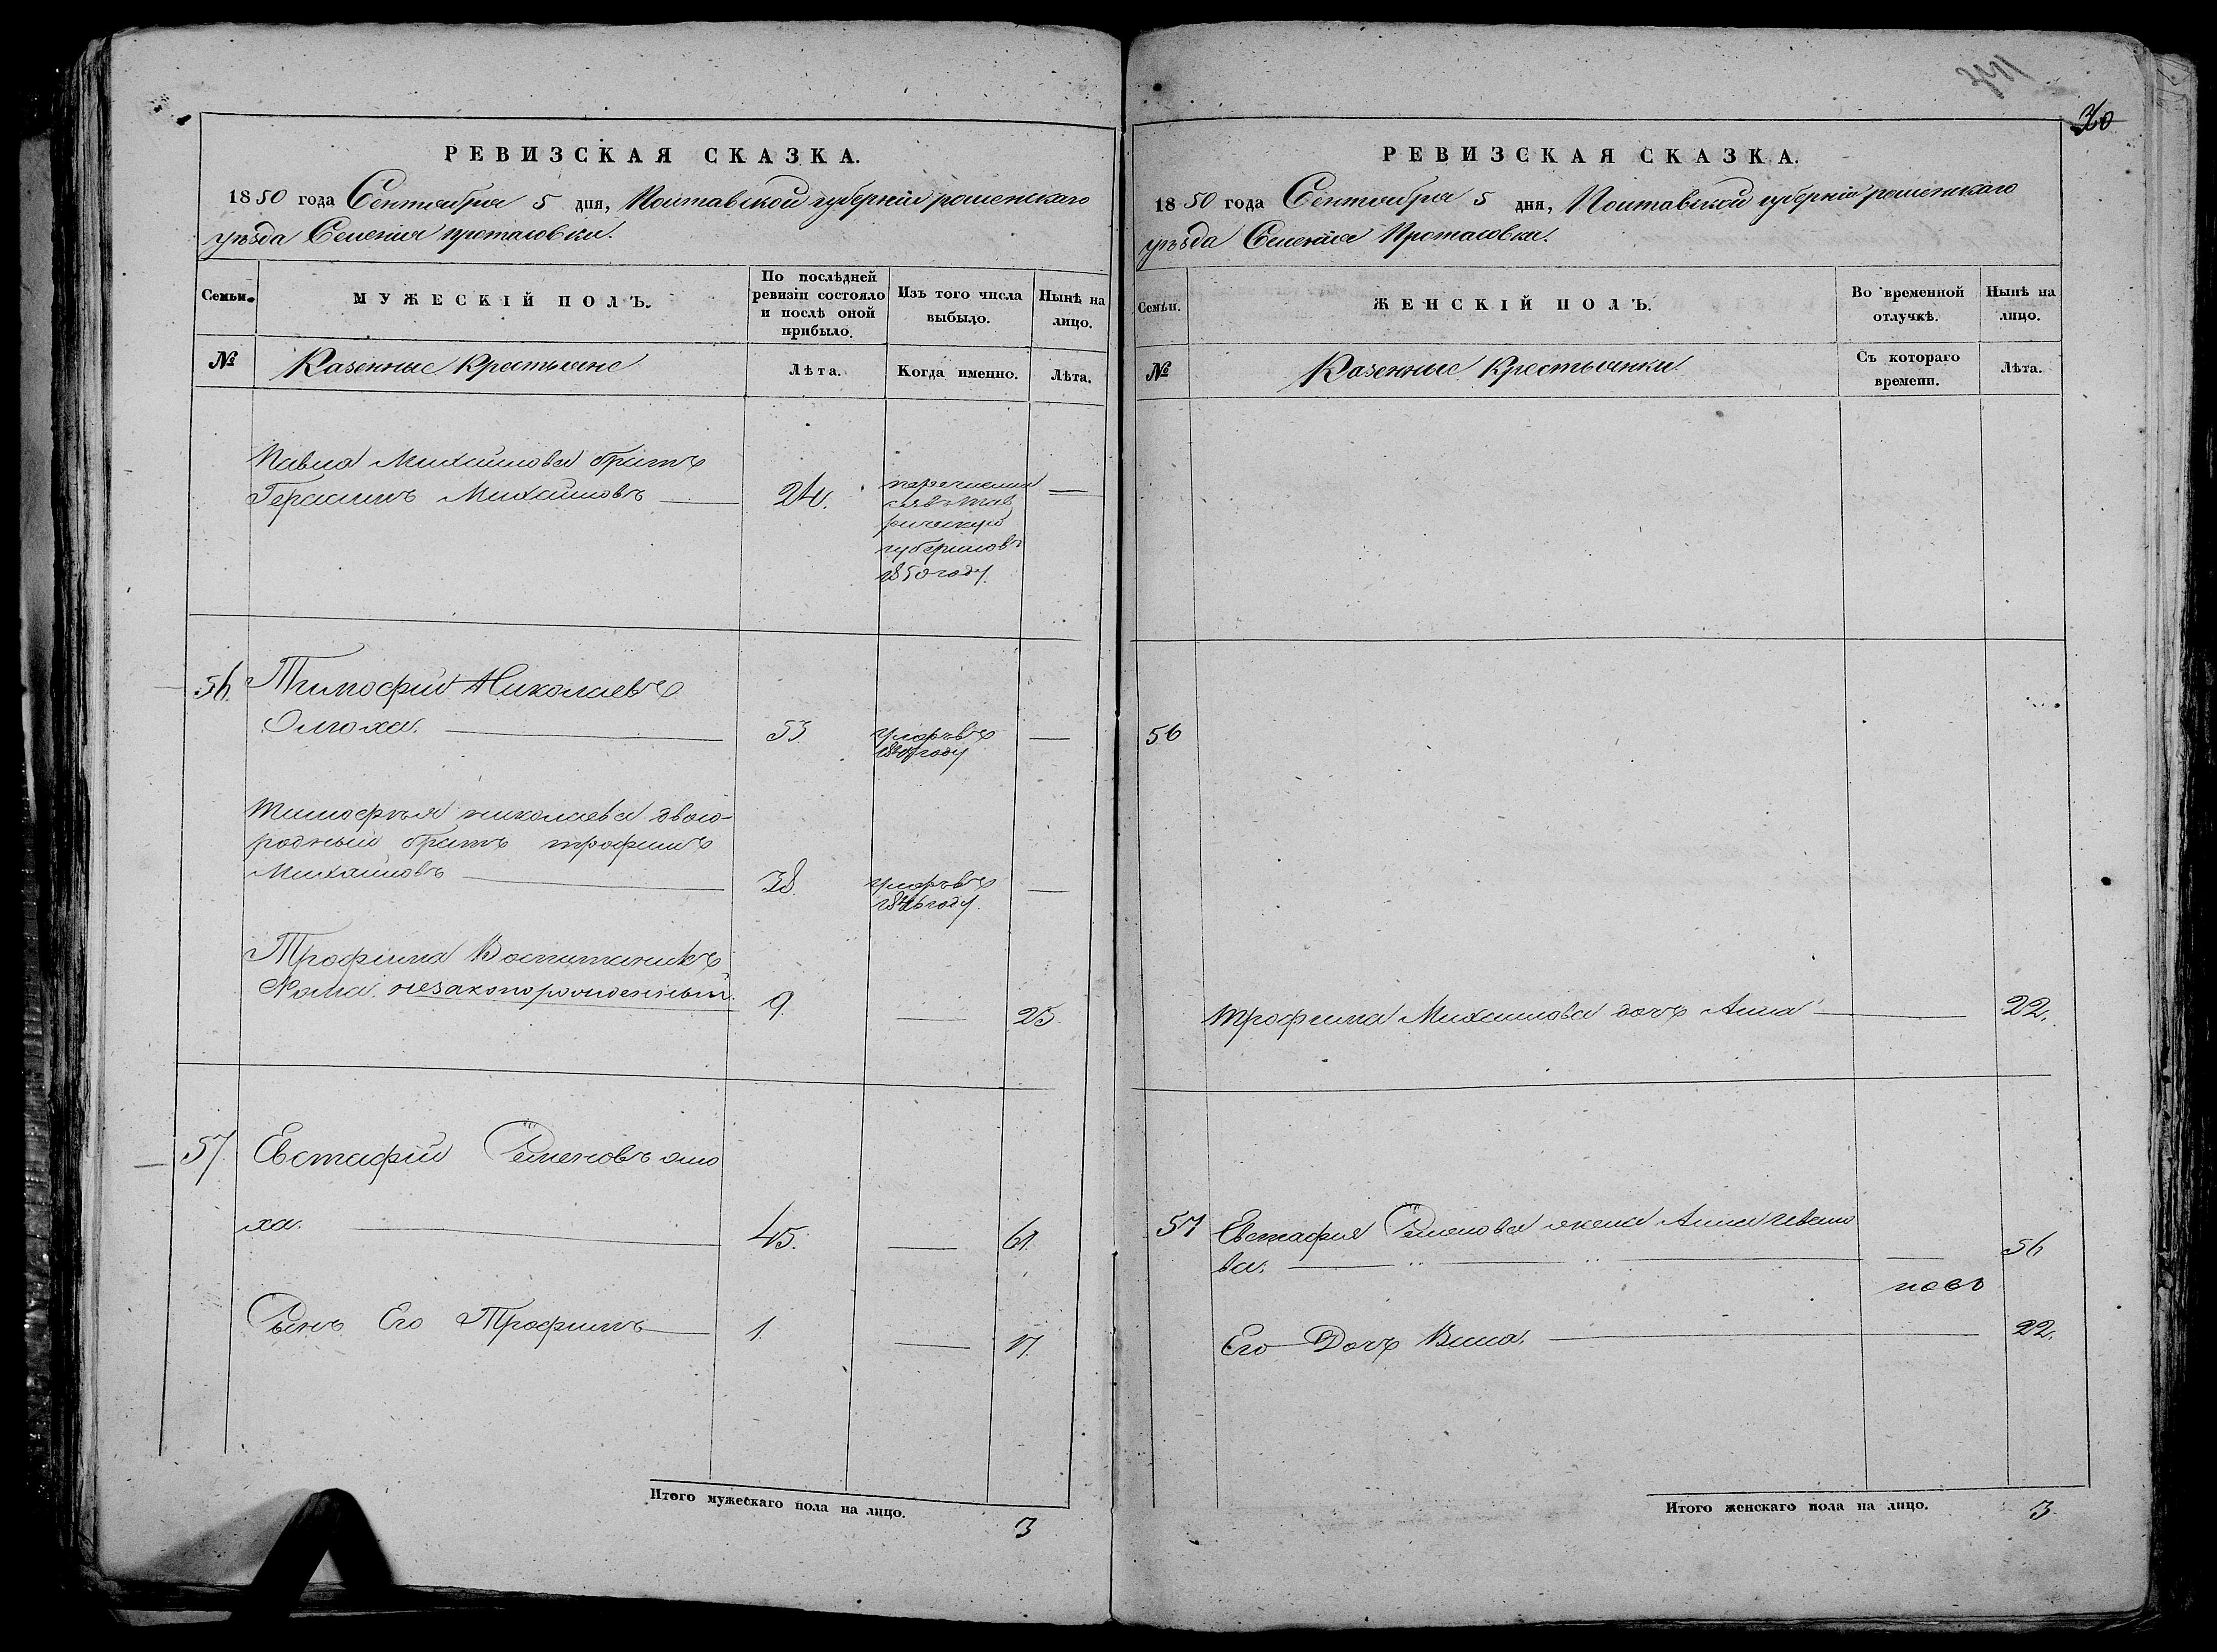 РЕВИЗСКАЯ СКАЗКА.
1850 года Сентября 5 дня, Полтавской губерніи роменскаго
уѣзда Селенія протасовки.
Семьи.
МУЖЕСКІЙ ПОЛЪ.
По послѣдней ревизіи состояло и послѣ оной прибыло.
Изъ того числа выбыло.
Нынѣ на лицо.
№
Казенные Крестьяне
Лѣта.
Когда именно.
Лѣта.
Павла Михайлова братъ
Герасимъ Михайловъ 24.
перечислил
ся въ Тав
рическую
губернію въ
1850 году.
56. Тимофій Николаевъ
Олюха. 53 умеръ въ
году
Тимофѣя николаева двою-
родный братъ трофимъ
Михайловъ 38. умеръ въ
1846 году.
Трофима Воспитаникъ
незаконорожденный. 9. 25.
57. Евстафій Семеновъ олю
ха. 45. 61.
Сынъ Его Трофимъ 1. 17.
Итого мужескаго пола на лицо.
3
360
РЕВИЗСКАЯ СКАЗКА.
1850 года Сентября 5 дня, Полтавской губерніи роменскаго
уѣзда Селенія Протасовки.
Семьи.
ЖЕНСКІЙ ПОЛЪ.
Во временной отлучкѣ.
Нынѣ на лицо.
№
Казенные Крестьянки
Съ котораго времени.
Лѣта.
56
Трофима Михайлова дочь Анна 22.
57 Евстафія Семенова жена Анна Ивано
ва. 56
Его Дочь 22.
Итого женскаго пола на лицо.
3